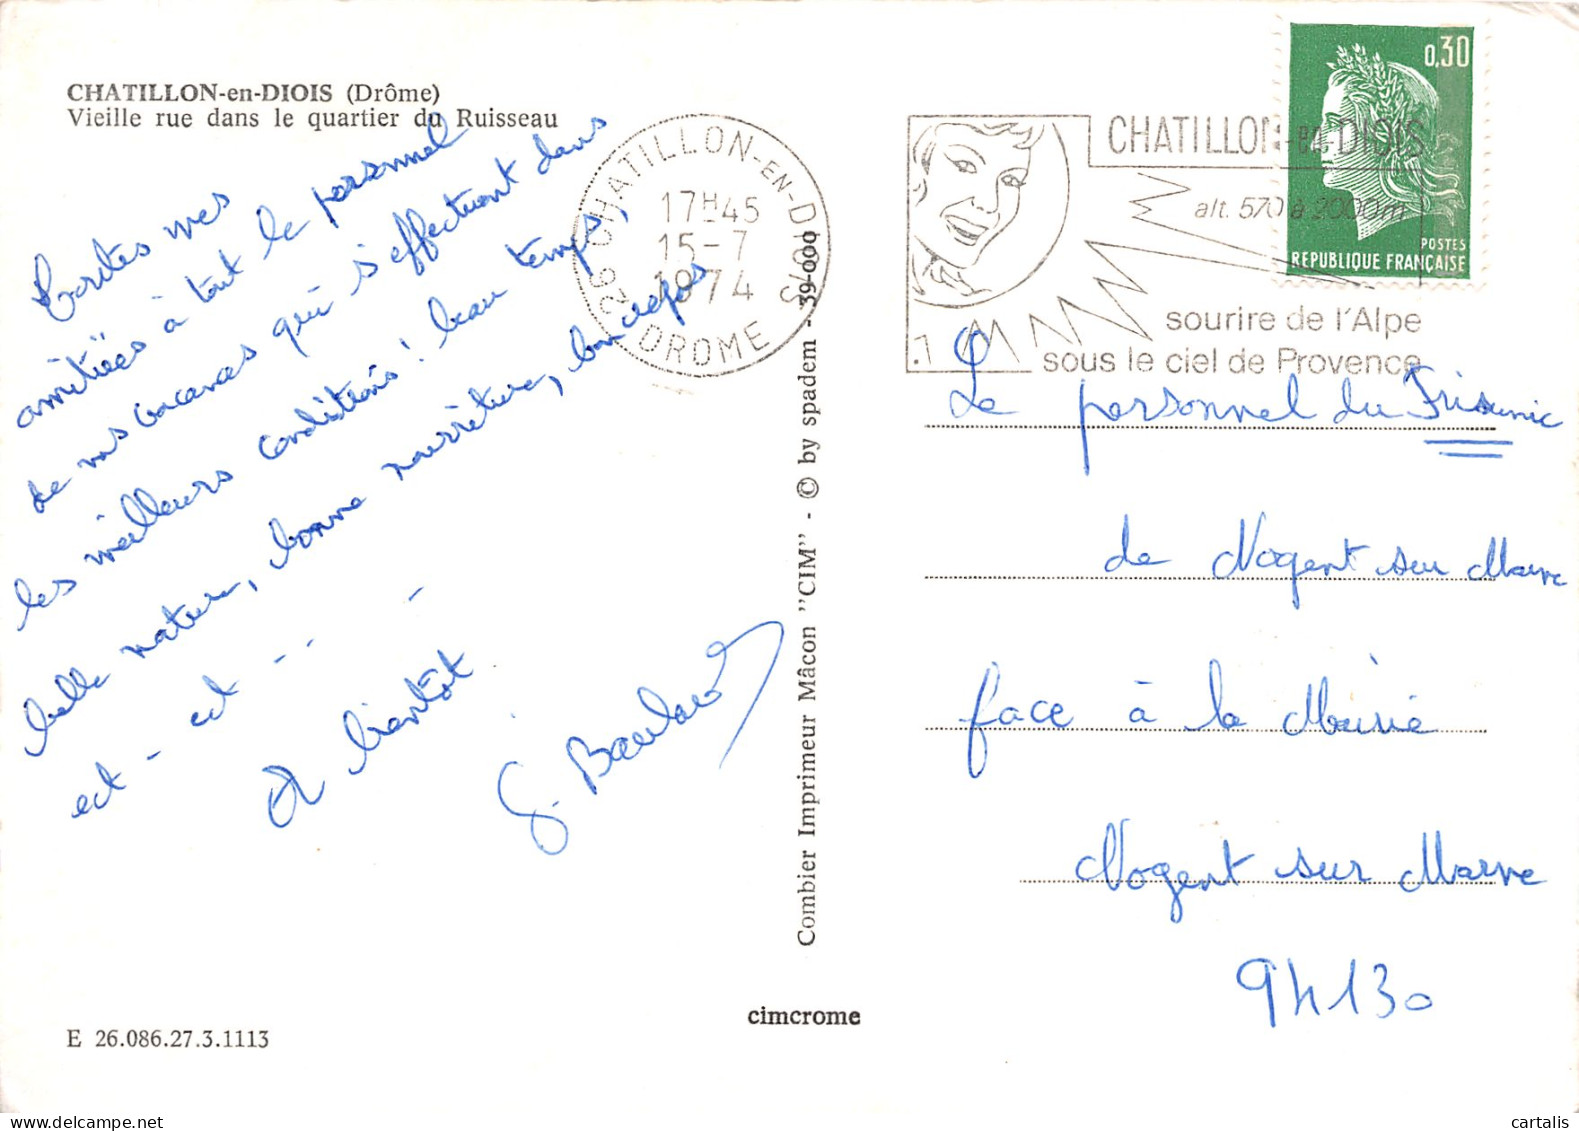 CHATILLON-en-DIOIS (Drôme)
Vieille rue dans le quartier du Ruisseau
Toutes mes
amitiées à tout le personnel
de mes vacances qui s'effectuent dans
les meilleurs conditions! beau temps,
belle nature, bonne nourriture, bon repos
ect - ect - - - -
A bientôt
G.
E 26.086.27.3.1113
26 CHATILLON-EN-DIOIS
17H-45
15-7
1974
DROME
Combier Imprimeur Mâcon "CIM" - © by spadem - 39-000
cimcrome
CHATILLON-EN-DIOIS
alt. 570 à 2000m
sourire de l'Alpe
sous le ciel de Provence
0,30
POSTES
REPUBLIQUE FRANÇAISE
Le personnel du Prisunic
de Nogent sur Marne
face à la Mairie
Nogent sur Marne
94130
cartalis | delcampe.net